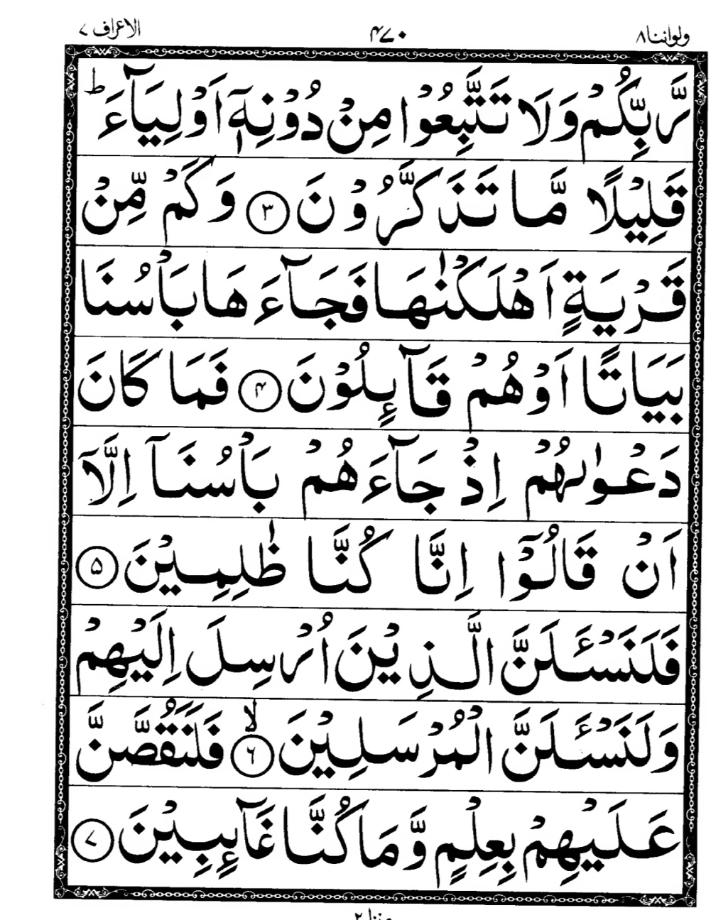 ولواننا ۸ ۴۷۰ الاعراف ۷
رَّبِّكُمْ وَلَا تَتَّبِعُوْا مِنْ دُوْنِهٖۤ اَوْلِيَآءَ ؕ
قَلِيْلًا مَّا تَذَكَّرُوْنَ ۳ وَكَمْ مِّنْ
قَرْيَةٍ اَهْلَكْنٰهَا فَجَآءَهَا بَاْسُنَا
بَيَاتًا اَوْ هُمْ قَآىِٕلُوْنَ ۴ فَمَا كَانَ
دَعْوٰىهُمْ اِذْ جَآءَهُمْ بَاْسُنَاۤ اِلَّاۤ
اَنْ قَالُوْۤا اِنَّا كُنَّا ظٰلِمِيْنَ ۵
فَلَنَسْـَٔلَنَّ الَّذِيْنَ اُرْسِلَ اِلَيْهِمْ
وَلَنَسْـَٔلَنَّ الْمُرْسَلِيْنَ ۙ ۶ فَلَنَقُصَّنَّ
عَلَيْهِمْ بِعِلْمٍ وَّمَا كُنَّا غَآىِٕبِيْنَ ۷